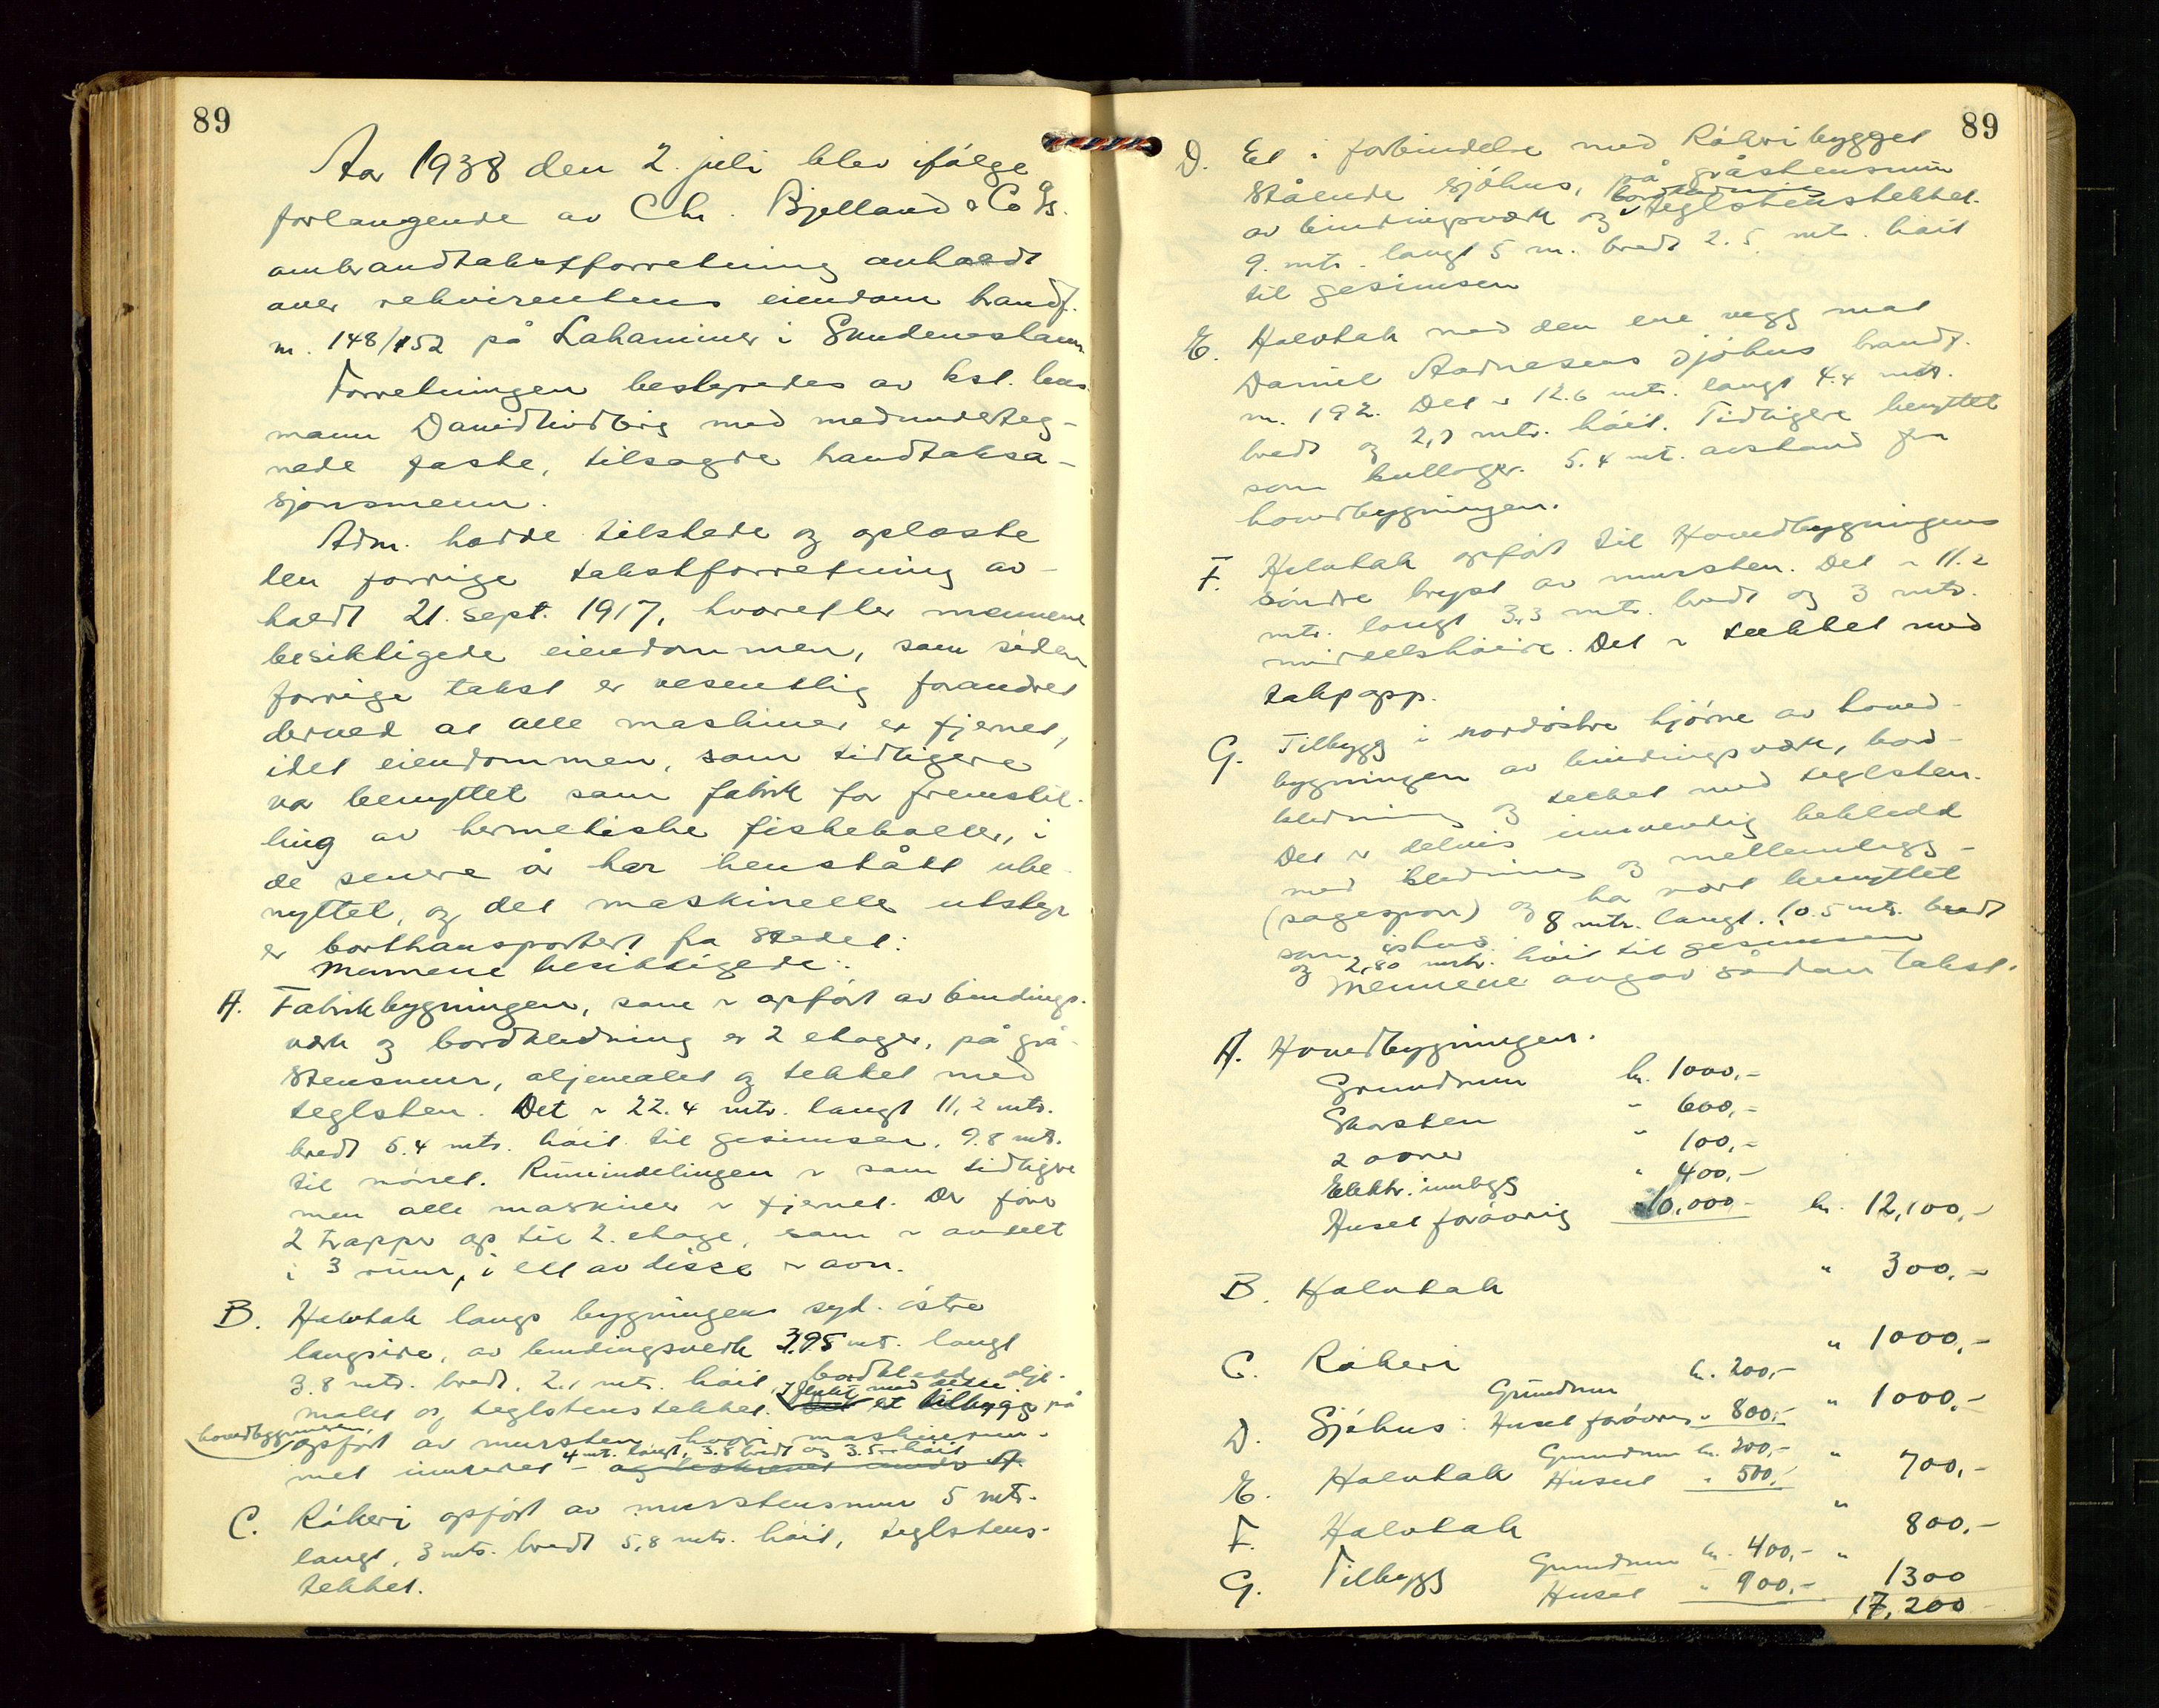 89
Aar 1938 den 2. juli blev ifølge
forlangende av Chr. Bjelland & Co A/s.
ombrandtakstforretning avholdt
over rekvirentens eiendom brandf.
nr. 148/152 på Lahammer i Skudeneshavn.
Forretningen bestyredes av kst. lens
mann David Lindberg med medunderteg-
nede faste, tilsagde brandtaksa-
sjonsmenn.
Adm. hadde tilstede og oplæste
den forrige takstforretning av-
holdt 21. sept. 1917, hvorefter mennene
besiktigede eiendommen, som siden
forrige takst er vesentlig forandret
derved at alle maskiner er fjernet,
idet eiendommen, som tidligere
var benyttet som fabrik for fremstil-
ling av hermetiske fiskeboller, i
de senere år har henstått ube
nyttet, og det maskinelle utstyr
er borttransportert fra stedet.
Mennene besiktigede:
A. Fabrikbygningen, som er opført av bindings-
verk og bordkledning er 2 etager, på grå-
stensmur, oljemalet og tekket med
teglsten. Det er 22.4 mtr. langt 11,2 mtr.
bredt 5.4 mtr. høit til gesimsen. 9.8 mtr.
til mønet. Rominndelingen er som tidligere
men alle maskiner er fjernet. Der fører
2 trapper op til 2. etage, som er avdelt
i 3 rum, i ett av disse er ovn.
B. Halvtak langs bygningens syd-østre
langside, av bindingsverk 3.95 mtr. langt
3.8 mtr. bredt, 2.1 mtr. høit, bordkledd, olje-
malet og teglstenstekket. I flukt med dette et tilbygg på
hovedbygningen,
opført av mursten hvori maskinrum-
met innredet - 4 mtr. langt, 3.8 bredt og 3.5 høit
C. Røkeri opført av murstensmur 5 mtr.
langt, 3 mtr. bredt 5,8 mtr. høit, teglstens-
tekket.
89
D. Et i forbindelse med Røkeribygget
stående sjøhus, på gråstensmur
av bindingsverk og bordkledning, teglstenstekket.
9. mtr. langt 5 m. bredt 2.5 mtr. høit
til gesimsen
E. Halvtak med den ene vegg mot
Daniel Aadnesens sjøhus brandf.
nr. 192. Det er 12.6 mtr. langt 4.4 mtr.
bredt og 2,7 mtr. høit. Tidligere benyttet
som kullager. 5.4 mt. avstand fra
hovedbygningen.
F. Halvtak opført til Hovedbygningens
søndre bryst av mursten. Det er 11.2
mtr. langt 3,3 mtr. bredt og 3 mtr.
middelshøide. Det er tekket med
takpapp.
G. Tilbygg i nordøstre hjørne av hoved-
bygningen av bindingsverk, bord-
kledning og tekket med teglsten.
Det er delvis innvendig bekledd
med kledning og mellemlegg-
(sagespon) og har vært benyttet
som ishus. 8 mtr. langt. 10.5 mtr. bredt
og 2,80 mtr. høit til gesimsen
Mennene avgav sådan takst.
A. Hovedbygningen.
Grundmur kr. 1000,-
Skorsten " 600,-
2 ovner " 100,-
Elektr. innlegg " 400,-
Huset forøvrig 10,000- kr. 12,100,-
B. Halvtak " 300,-
C. Røkeri " 1000,-
D. Sjøhus: Grundmur kr. 200,-
Huset forøvrig " 800,- " 1000,-
E. Halvtak Grundmur kr. 200,-
Huset " 500,- " 700,-
F. Halvtak " 800,-
G. Tilbygg Grundmur kr. 400,-
Huset " 900,- " 1300
17,200